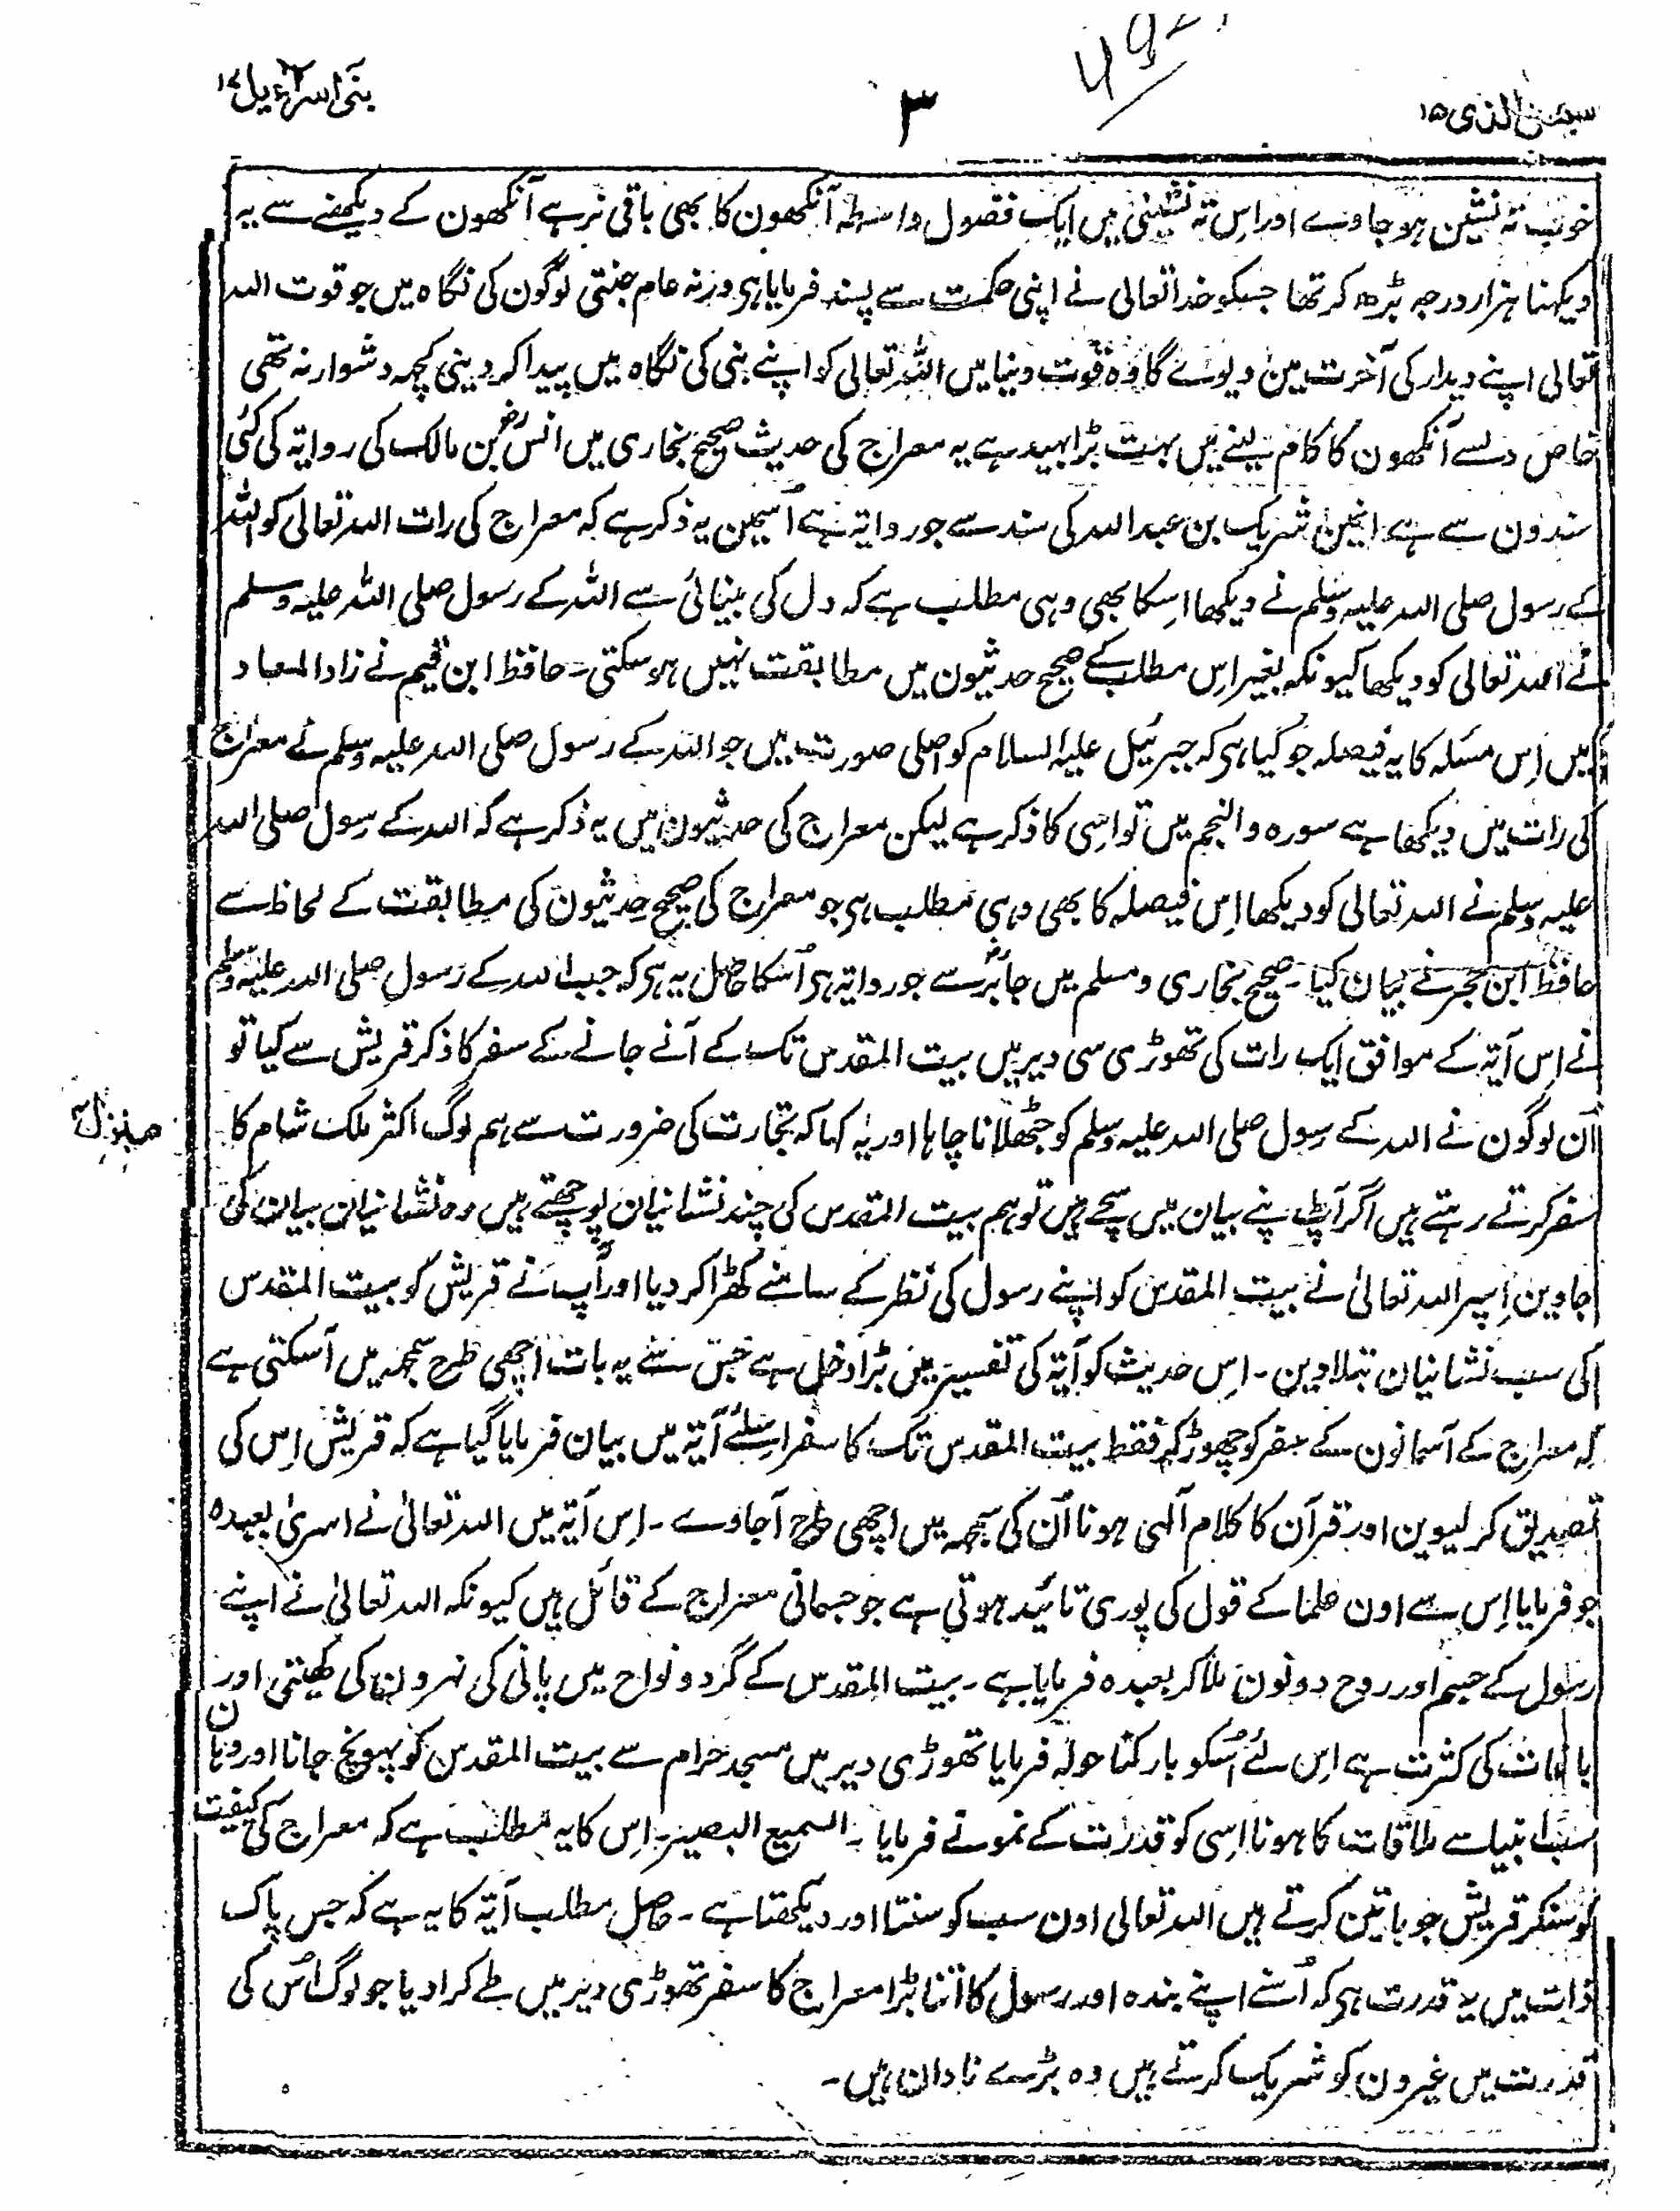 سبحٰن الذی ۱۵
۳
بنی اسرآءیل ۱۷
خوب تہ نشین ہو جاوے اور اس تہ نشینی میں ایک فضول واسطہ آنکھون کا بھی باقی نرہے آنکھون کے دیکھنے سے یہ
دیکہنا ہزار درجہ بڑھ کر تھا جسکو خدا تعالی نے اپنی حکمت سے پسند فرمایا ہی ورنہ عام جنتی لوگون کی نگاہ میں جو قوت اللہ
تعالی اپنے دیدار کی آخرت مین دیوے گا وہ قوت دنیا میں اللہ تعالی کو اپنے نبی کی نگاہ میں پیدا کر دینی کچہہ دشوار نہ تھی
خاص دلسے آنکھون کا کام لینے میں بہت بڑا بہید ہے یہ معراج کی حدیث صحیح بخاری میں انسؓ بن مالک کی روایۃ کی کئی
سندون سے ہے انمین شریک بن عبد اللہ کی سند سے جو روایۃ ہے اُسمین یہ ذکر ہے کہ معراج کی رات اللہ تعالی کو اللہ
کے رسول صلی اللہ علیہ وسلم نے دیکھا اسکا بھی وہی مطلب ہے کہ دل کی بینائی سے اللہ کے رسول صلی اللہ علیہ وسلم
نے اللہ تعالی کو دیکھا کیونکہ بغیر اس مطلب کے صحیح حدیثون میں مطابقت نہیں ہو سکتی۔ حافظ ابن قیم نے زاد المعاد
میں اِس مسئلہ کا یہ فیصلہ جو کیا ہی کہ جبرئیل علیہ السلام کو اصلی صورت میں جو اللہ کے رسول صلی اللہ علیہ وسلم نے معراج
کی رات میں دیکھا ہے سورہ والنجم میں تو اسِی کا ذکر ہے لیکن معراج کی حدیثون میں یہ ذکر ہے کہ اللہ کے رسول صلی اللہ
علیہ وسلم نے اللہ تعالی کو دیکھا اِس فیصلہ کا بھی وہی مطلب ہی جو معراج کی صحیح حدیثون کی مطابقت کے لحاظ سے
حافظ ابن حجر نے بیان کیا۔ صحیح بخاری و مسلم میں جابرؓ سے جو روایۃ ہی اُسکا حاصل یہ ہی کہ جب اللہ کے رسول صلی اللہ علیہ وسلم
نے اِس آیۃ کے موافق ایک رات کی تھوڑی سی دیر میں بیت المقدس تک کے آنے جانے کے سفر کا ذکر قریش سے کیا تو
اُن لوگون نے اللہ کے رسول صلی اللہ علیہ وسلم کو جٹھلانا چاہا اور یہ کہا کہ تجارت کی ضرورت سے ہم لوگ اکثر ملک شام کا
منزل ۴
سفر کرتے رہتے ہیں اگر آپ اپنے بیان میں سچے ہیں تو ہم بیت المقدس کی چند نشانیان پوچھتے ہیں وہ نشانیان بیان کی
جاوین اِسپر اللہ تعالیٰ نے بیت المقدس کو اپنے رسول کی نظر کے سامنے کھڑا کر دیا اور آپ نے قریش کو بیت المقدس
کی سب نشانیان بتلا دین۔ اِس حدیث کو آیۃ کی تفسیر میں بڑا دخل ہے جس سے یہ بات اچھی طرح سمجہہ میں آسکتی ہے
کہ معراج کے آسمانون کے سفر کو چھوڑ کر فقط بیت المقدس تک کا سفر اسلئے آیۃ میں بیان فرمایا گیا ہے کہ قریش اِس کی
تصدیق کر لیوین اور قرآن کا کلام آلٰہی ہونا اُن کی سمجہہ میں اچھی طرح آجاوے۔ اِس آیۃ میں اللہ تعالیٰ نے اسریٰ بعبدہ
جو فرمایا اِس سے اون علما کے قول کی پوری تائید ہوتی ہے جو جسمانی معراج کے قائل ہیں کیونکہ اللہ تعالیٰ نے اپنے
رسول کے جسم اور روح دونون ملا کر بعبدہ فرمایا ہے۔ بیت المقدس کے گرد و نواح میں پانی کی نہرون کی کھیتی اور
باغات کی کثرت ہے اِس لئے اُسکو بارکنا حولہ فرمایا تھوڑی دیر میں مسجد حرام سے بیت المقدس کو پہونچ جانا اور وہان
سب انبیا سے ملاقات کا ہونا اسِی کو قدرت کے نمونے فرمایا۔ السمیع البصیر۔ اِس کا یہ مطلب ہے کہ معراج کی کیفیت
کو سنکر قریش جو باتین کرتے ہیں اللہ تعالی اون سب کو سنتا اور دیکھتا ہے۔ حاصل مطلب آیۃ کا یہ ہے کہ جس پاک
ذات میں یہ قدرت ہی کہ اُسنے اپنے بندہ اور رسول کا اتنا بڑا معراج کا سفر تھوڑی دیر میں طے کرا دیا جو لوگ اُس کی
قدرت میں غیرون کو شریک کرتے ہیں وہ بڑے نادان ہیں۔